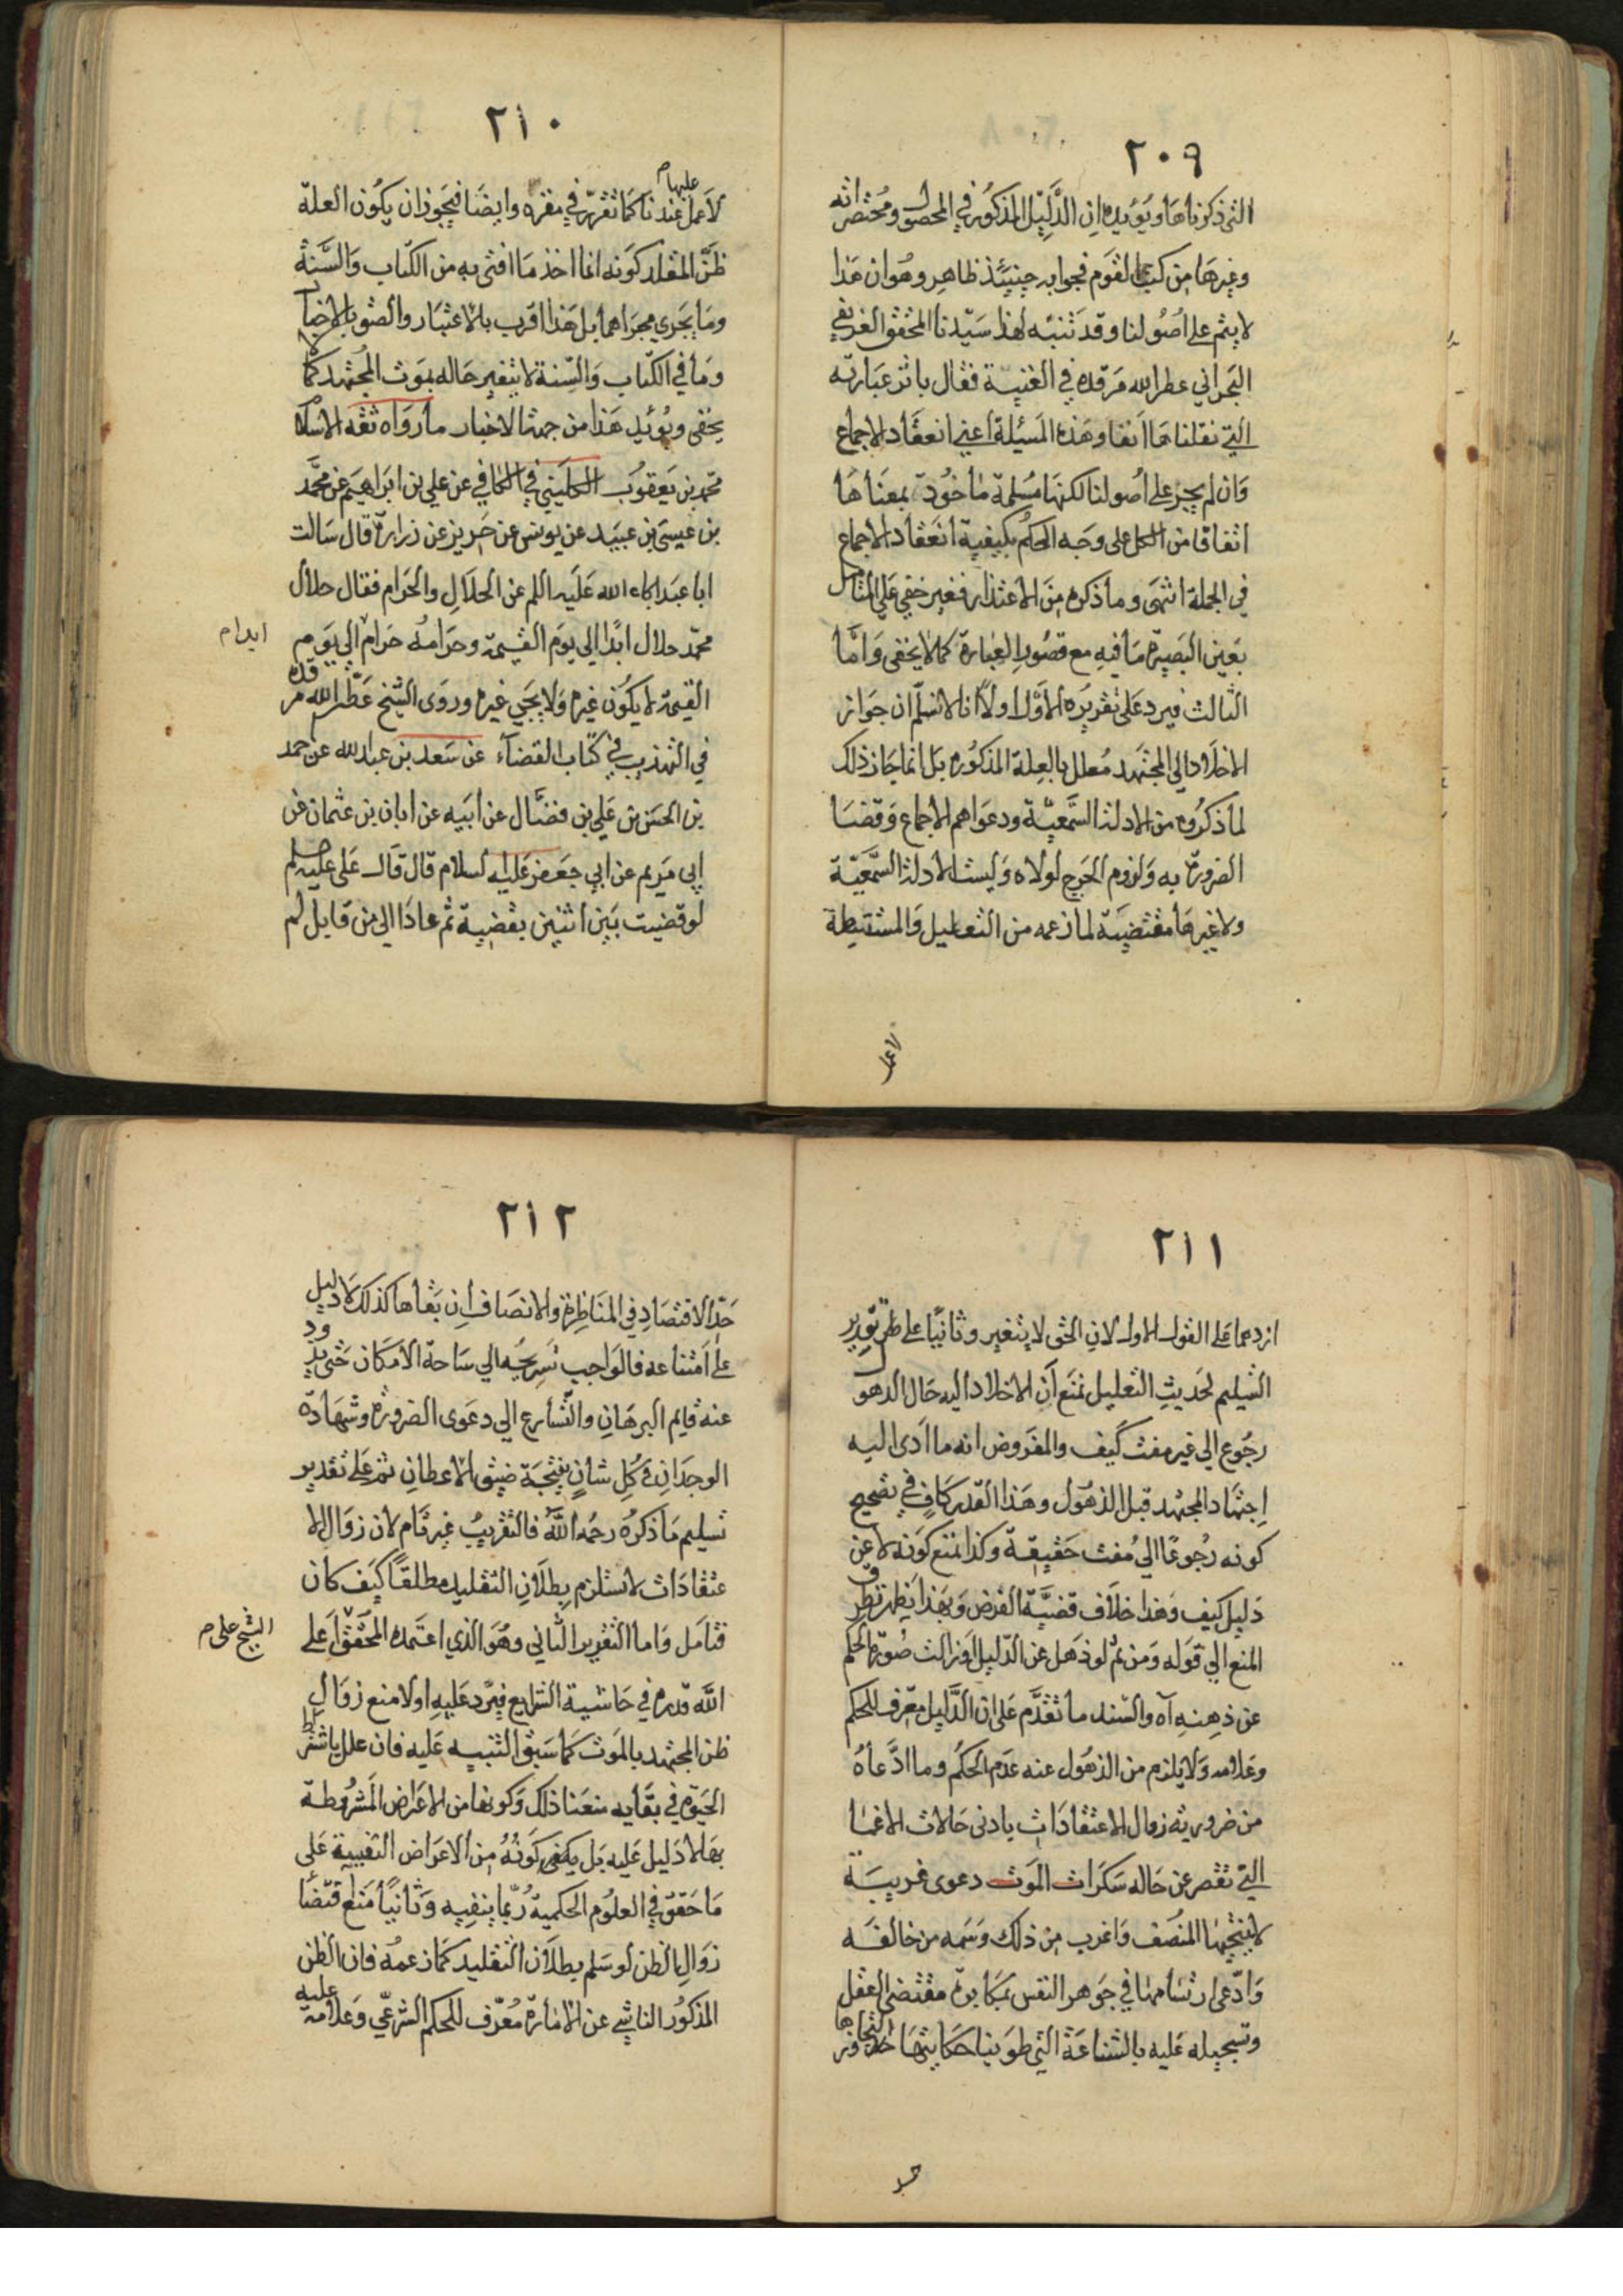 ٢٠٩
التي ذكرناها ويؤيده ان الدليل المذكور في المحصول ومختصراته
وغيرها من كتب القوم فجوابه حينئذ ظاهر وهو ان هذا
لا يتم على اصولنا وقد تنبه لهذا سيدنا المحقق الغريفي
البحراني عطر الله مرقده في الغنية فقال باثر عبارته
التي نقلناها انفا وهذه المسئلة اعني انعقاد الاجماع
وان لم يجز على اصولنا لكنها مسلمة ماخوذة بمعناها
اتفاقا من الكل على وجه الحكم بكيفية انعقاد الاجماع
في الجملة انتهى وما ذكره من الاعتذار فغير خفي على المتامل
بعين البصيرة ما فيه مع قصور العبارة كما لا يخفى واما
الثالث فيرد على تقريره الاول اولا انا لا نسلم ان جواز
الاخلاد الى المجتهد معلل بالعلة المذكورة بل انما جاز ذلك
لما ذكروه من الادلة السمعية ودعواهم الاجماع وقضا
الضرورة به ولزوم الحرج لولاه وليست الادلة السمعية
ولا غيرها مقتضية لما زعمه من التعليل والمستنبطة
لا عمل
٢١٠
لا عمل عليها م عندنا كما تقرر في مقره وايضا فيجوز ان يكون العلة
ظن المقلد كونه انما اخذ ما افتى به من الكتاب والسنة
وما يجري مجراهما بل هذا اقرب بالاعتبار والصق بالاخبار
وما في الكتاب والسنة لا يتغير حاله بموت المجتهد كما لا
يخفى ويؤيد هذا من جهة الاخبار ما رواه ثقة الاسلام
محمد بن يعقوب الكليني في الكافي عن علي بن ابراهيم عن محمد
بن عيسى بن عبيد عن يونس عن حريز عن زرارة قال سالت
ابا عبد الله عليه السلم عن الحلال والحرام فقال حلال
محمد حلال ابدا الى يوم القيمة وحرامه حرام الى يوم
ابدا م
القيمة لا يكون غيره ولا يجي غيره وروى الشيخ عطر الله مرقده
في التهذيب في كتاب القضآء عن سعد بن عبد الله عن احمد
بن الحسن بن علي بن فضال عن ابيه عن ابان بن عثمان عن
ابي مريم عن ابي جعفر عليه السلام قال قال علي عليه السلم
لو قضيت بين اثنين بقضية ثم عادا الي من قابل لم
٢١١
ازدهما على القول الاول لان الحق لا يتغير وثانيا على تقرير
التسليم لحديث التعليل نمنع ان الاخلاد اليه حال الذهول
رجوع الى غير مفت كيف والمفروض انه ما ادى اليه
اجتهاد المجتهد قبل الذهول وهذا القدر كاف في تصحيح
كونه رجوعا الى مفت حقيقة وكذا نمنع كونه لا عن
دليل كيف وهذا خلاف قضية الفرض وبهذا يظهر تطرق
المنع الى قوله ومن ثم لو ذهل عن الدليل او زالت صورة الحكم
عن ذهنه آه والسند ما تقدم على ان الدليل معرف للحكم
وعلامه ولا يلزم من الذهول عنه عدم الحكم وما ادعاه
من ضرورية زوال الاعتقادات بادنى حالات الاغما
التي تقصر عن حاله سكرات الموت دعوى غريبة
لا ينتجها المنصف واغرب من ذلك وسمه من خالفه
وادعى ارتسامها في جوهر النفس بمكابرة مقتضى العقل
وتسجيله عليه بالشناعة التي طوينا حكايتها لتجاوزها
حد
٢١٢
حد الاقتصاد في المناظرة والانصاف ان بقاها كذلك لا دليل
على امتناعه فالواجب تسريحه الى ساحة الامكان حتى يذود
عنه قايم البرهان والتسارع الى دعوى الضرورة وشهادة
الوجدان في كل شان نتيجة ضيق الاعطان ثم على تقدير
تسليم ما ذكره رحمه الله فالتقريب غير تام لان زوال الا
عتقادات لا تستلزم بطلان التقليد مطلقا كيف كان
فتامل واما التقرير الثاني وهو الذي اعتمده المحقق اعلى
الشيخ علي م
الله قدره في حاشية الشرايع فيرد عليه اولا منع زوال
ظن المجتهد بالموت كما سبق التنبيه عليه فان علل باشتراط
الحيوة في بقايه منعنا ذلك وكونها من الاعراض المشروطة
بها لا دليل عليه بل يكفي كونه من الاعراض النفسية على
ما حقق في العلوم الحكمية ربما ينفيه وثانيا منع اقتضا
زوال الظن لو سلم بطلان التقليد كما زعمه فان الظن
المذكور الناشي عن الامارة معرف للحكم الشرعي وعلامة عليه